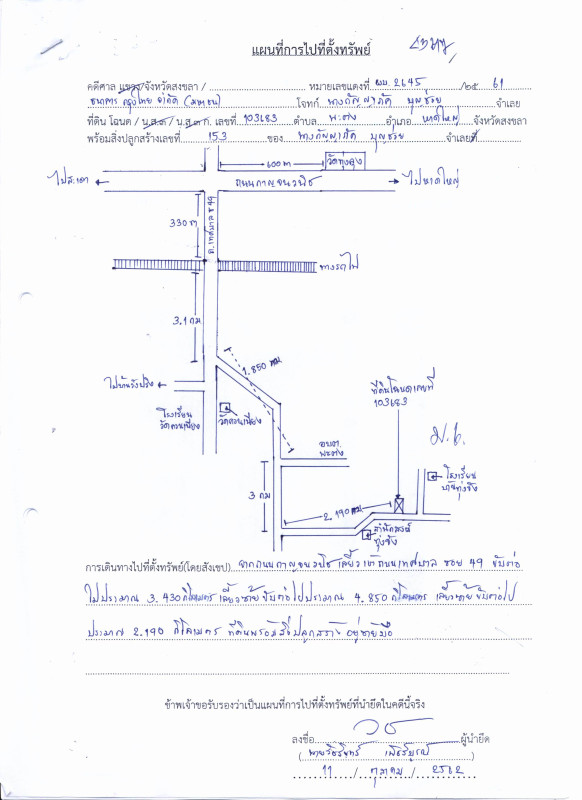 แผนที่การไปที่ตั้งทรัพย์
คดีศาล แขวง/จังหวัดสงขลา / หมายเลขแดงที่ ผบ. 2645 /๒๕ 61
ธนาคาร กรุงไทย จำกัด (มหาชน) โจทก์ นางกัญญาภัค บุญช่วย จำเลย
ที่ดิน โฉนด / น.ส.๓ / น.ส.๓ ก. เลขที่ 103683 ตำบล พะตง อำเภอ หาดใหญ่ จังหวัดสงขลา
พร้อมสิ่งปลูกสร้างเลขที่ 153 ของ นางกัญญาภัค บุญช่วย จำเลยที่
600 m วัดทุ่งลุง
ไปสะเดา ถนนกาญจนวนิช ไปหาดใหญ่
330 m ถ.เทศบาล ซ 49
ทางรถไฟ
3.1 กม
1.850 กม
ไปบ้านวังปริง
ที่ดินโฉนดเลขที่
103683
โรงเรียน
วัดควนเนียง
วัดควนเนียง
อบต.
พะตง
ม.6.
โรงเรียน
บ้านทุ่งขึง
3 กม
2.190 กม
สำนักสงฆ์
ทุ่งขึง
การเดินทางไปที่ตั้งทรัพย์(โดยสังเขป) จากถนนกาญจนวนิช เลี้ยวเข้าถนนเทศบาล ซอย 49 ขับต่อ
ไปประมาณ 3.430 กิโลเมตร เลี้ยวซ้าย ขับต่อไปประมาณ 4.850 กิโลเมตร เลี้ยวซ้าย ขับต่อไป
ประมาณ 2.190 กิโลเมตร ที่ดินพร้อมสิ่งปลูกสร้าง อยู่ซ้ายมือ
ข้าพเจ้าขอรับรองว่าเป็นแผนที่การไปที่ตั้งทรัพย์ที่นำยึดในคดีนี้จริง
ลงชื่อ ผู้นำยึด
11 / ตุลาคม / 2562